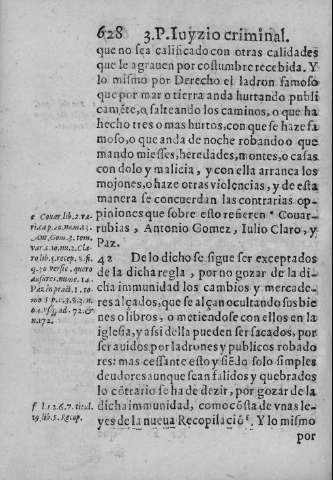 628 3.P.Iuyzio criminal.
que no sea calificado con otras calidades
que le agrauen por costumbre recebida. Y
lo mismo por Derecho el ladron famoso
que por mar o tierra anda hurtando publi
camẽte, o salteando los caminos, o que ha
hecho tres o mas hurtos, con que se haze fa
moso, o que anda de noche robando o que
mando miesses, heredades, montes, o casas
con dolo y malicia, y con ella arranca los
mojones, o haze otras violencias, y de esta
manera se concuerdan las contrarias op-
piniones que sobre esto refieren e Couar-
rubias, Antonio Gomez, Iulio Claro, y
Paz.
e Couar.lib.2.va-
ri.cap.20.num.13.
Ant.Gom.3.tom.
var.c.10.nu.2.Cla-
ro lib.5.recep.§.fi.
q.30 versic.quero
Paz in pract.1.to-
42 De lo dicho se sigue ser exceptados
de la dicha regla, por no gozar de la di-
cha immunidad los cambios y mercade-
res alçados, que se alçan ocultando sus bie
nes o libros, o metiendose con ellos en la
iglesia, y assi della pueden ser sacados, por
ser auidos por ladrones y publicos robado
res: mas cessante esto y siẽdo solo simples
deudores aunque sean falidos y quebrados
lo cõtrario se ha de dezir, por gozar de la
dicha immunidad, como cõsta de vnas le-
yes de la nueua Recopilaciõ f. Y lo mismo
f l.1.2.6.7. titul.
19.lib.5. Recop.
por